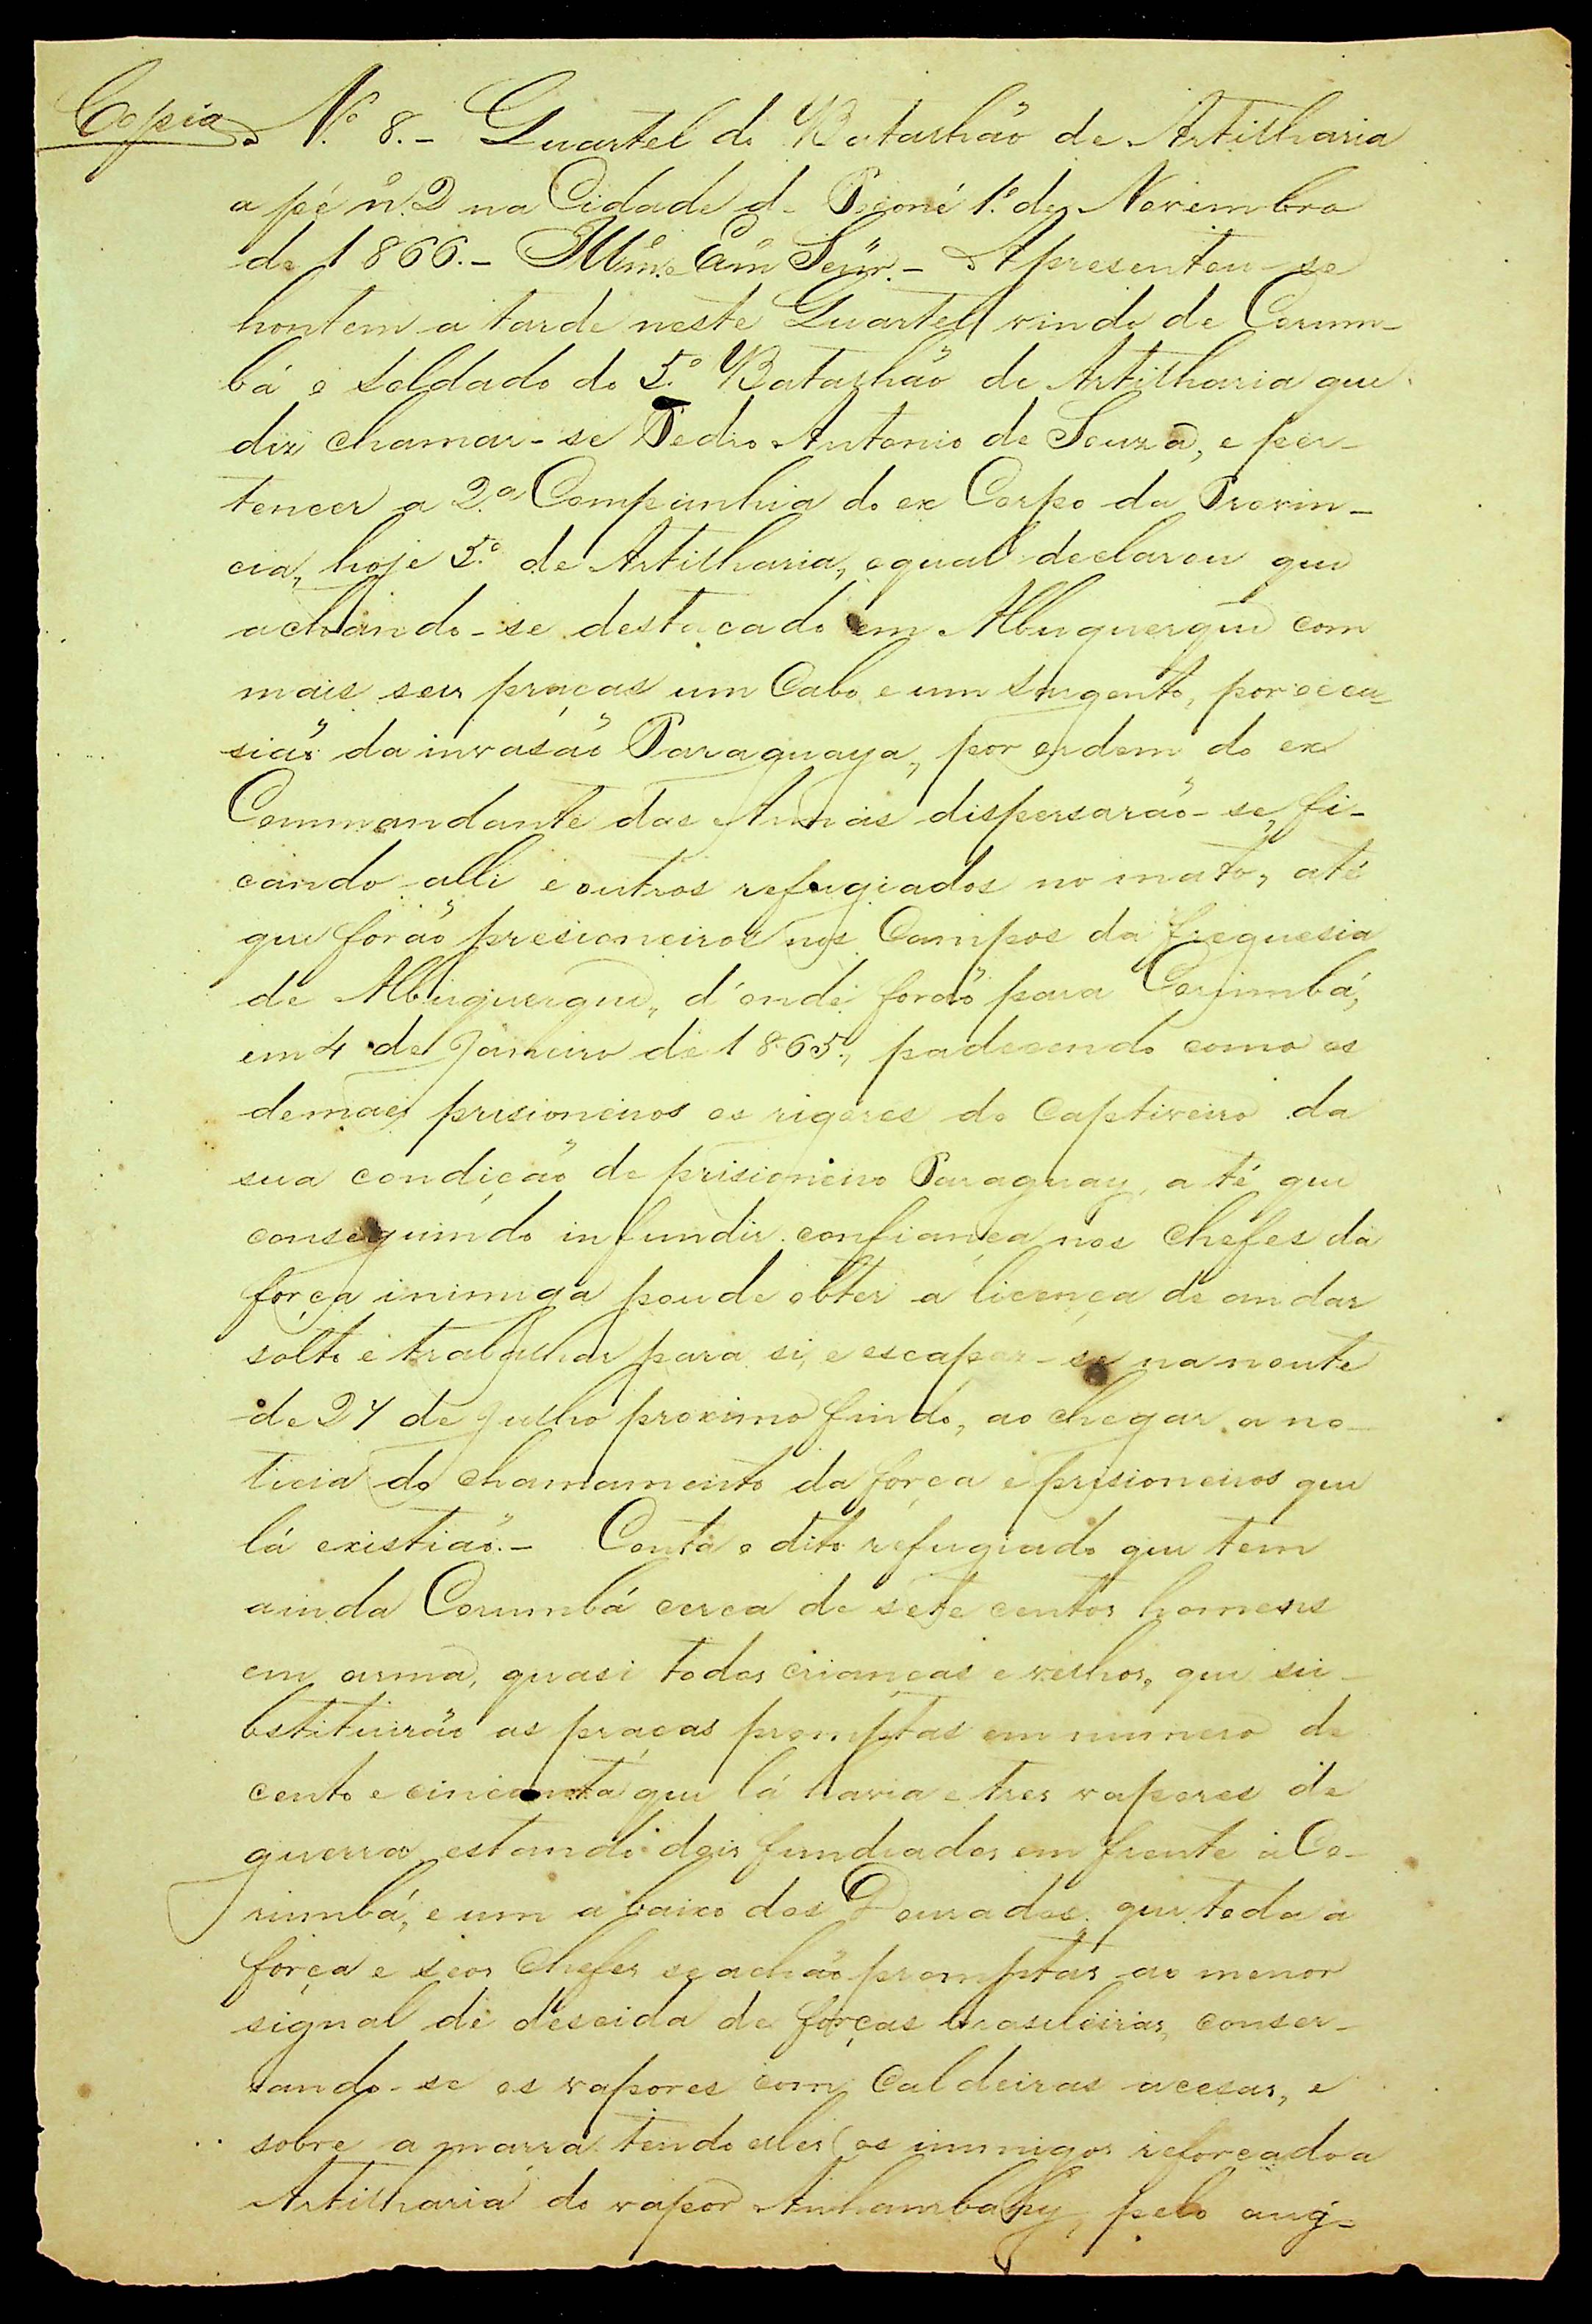 Copia Nº 8.- Quartel do Batalhão de Artilharia
a pé nº 2 na Cidade de Poconé 1º de Novembro
de 1866.- Illmº Exmº Senr.- Apresentou-se
hontem a tarde neste Quartel vindo de Corum-
bá o soldado do 5º Batalhão de Artilharia que
diz chamar-se Pedro Antonio de Souza, e per-
tencer a 2ª Companhia do ex Corpo da Provin-
cia, hoje 5º de Artilharia, o qual declarou que
achando-se destacado em Albuquerque com
mais seis praças um Cabo e um Sargento, por occa-
sião da invasão Paraguaya, por ordem do ex
Commandante das Armas dispersarão-se, fi-
cando elle e outros refugiados no mato, até
que forão presioneiros nos Campos da freguesia
de Albuquerque, d'onde forão para Corumbá,
em 4 de Janeiro de 1865, padecendo como os
demaes prisioneiros os rigores do Captiveiro da
sua condição de prisioneiro Paraguay, até que
conseguindo infundir confiança nos Chefes da
força inimiga poude obter a licença de andar
solto e trabalhar para si, e escapar-se na noute
de 27 de Julho proximo findo, ao chegar a no-
ticia do chamamento da força e prisioneiros que
lá existião.- Conta o dito refugiado que tem
ainda Corumbá cerca de sete centos homens
em arma, quasi todos crianças e velhos, que su-
bstituirão as praças promptas em numero de
cento e cincoenta que lá havia e tres vapores de
guerra, estando dois fundiados em frente á Co-
rumbá, e um abaixo dos Dourados, que toda a
força e seos Chefes se achão promptas ao menor
signal de descida de forças brasileiras, conser-
vando-se os vapores com Caldeiras acesas, e
sobre amarra tendo elles (os inimigos reforçado a
Artilharia do vapor Anhambahy, pelo aug-